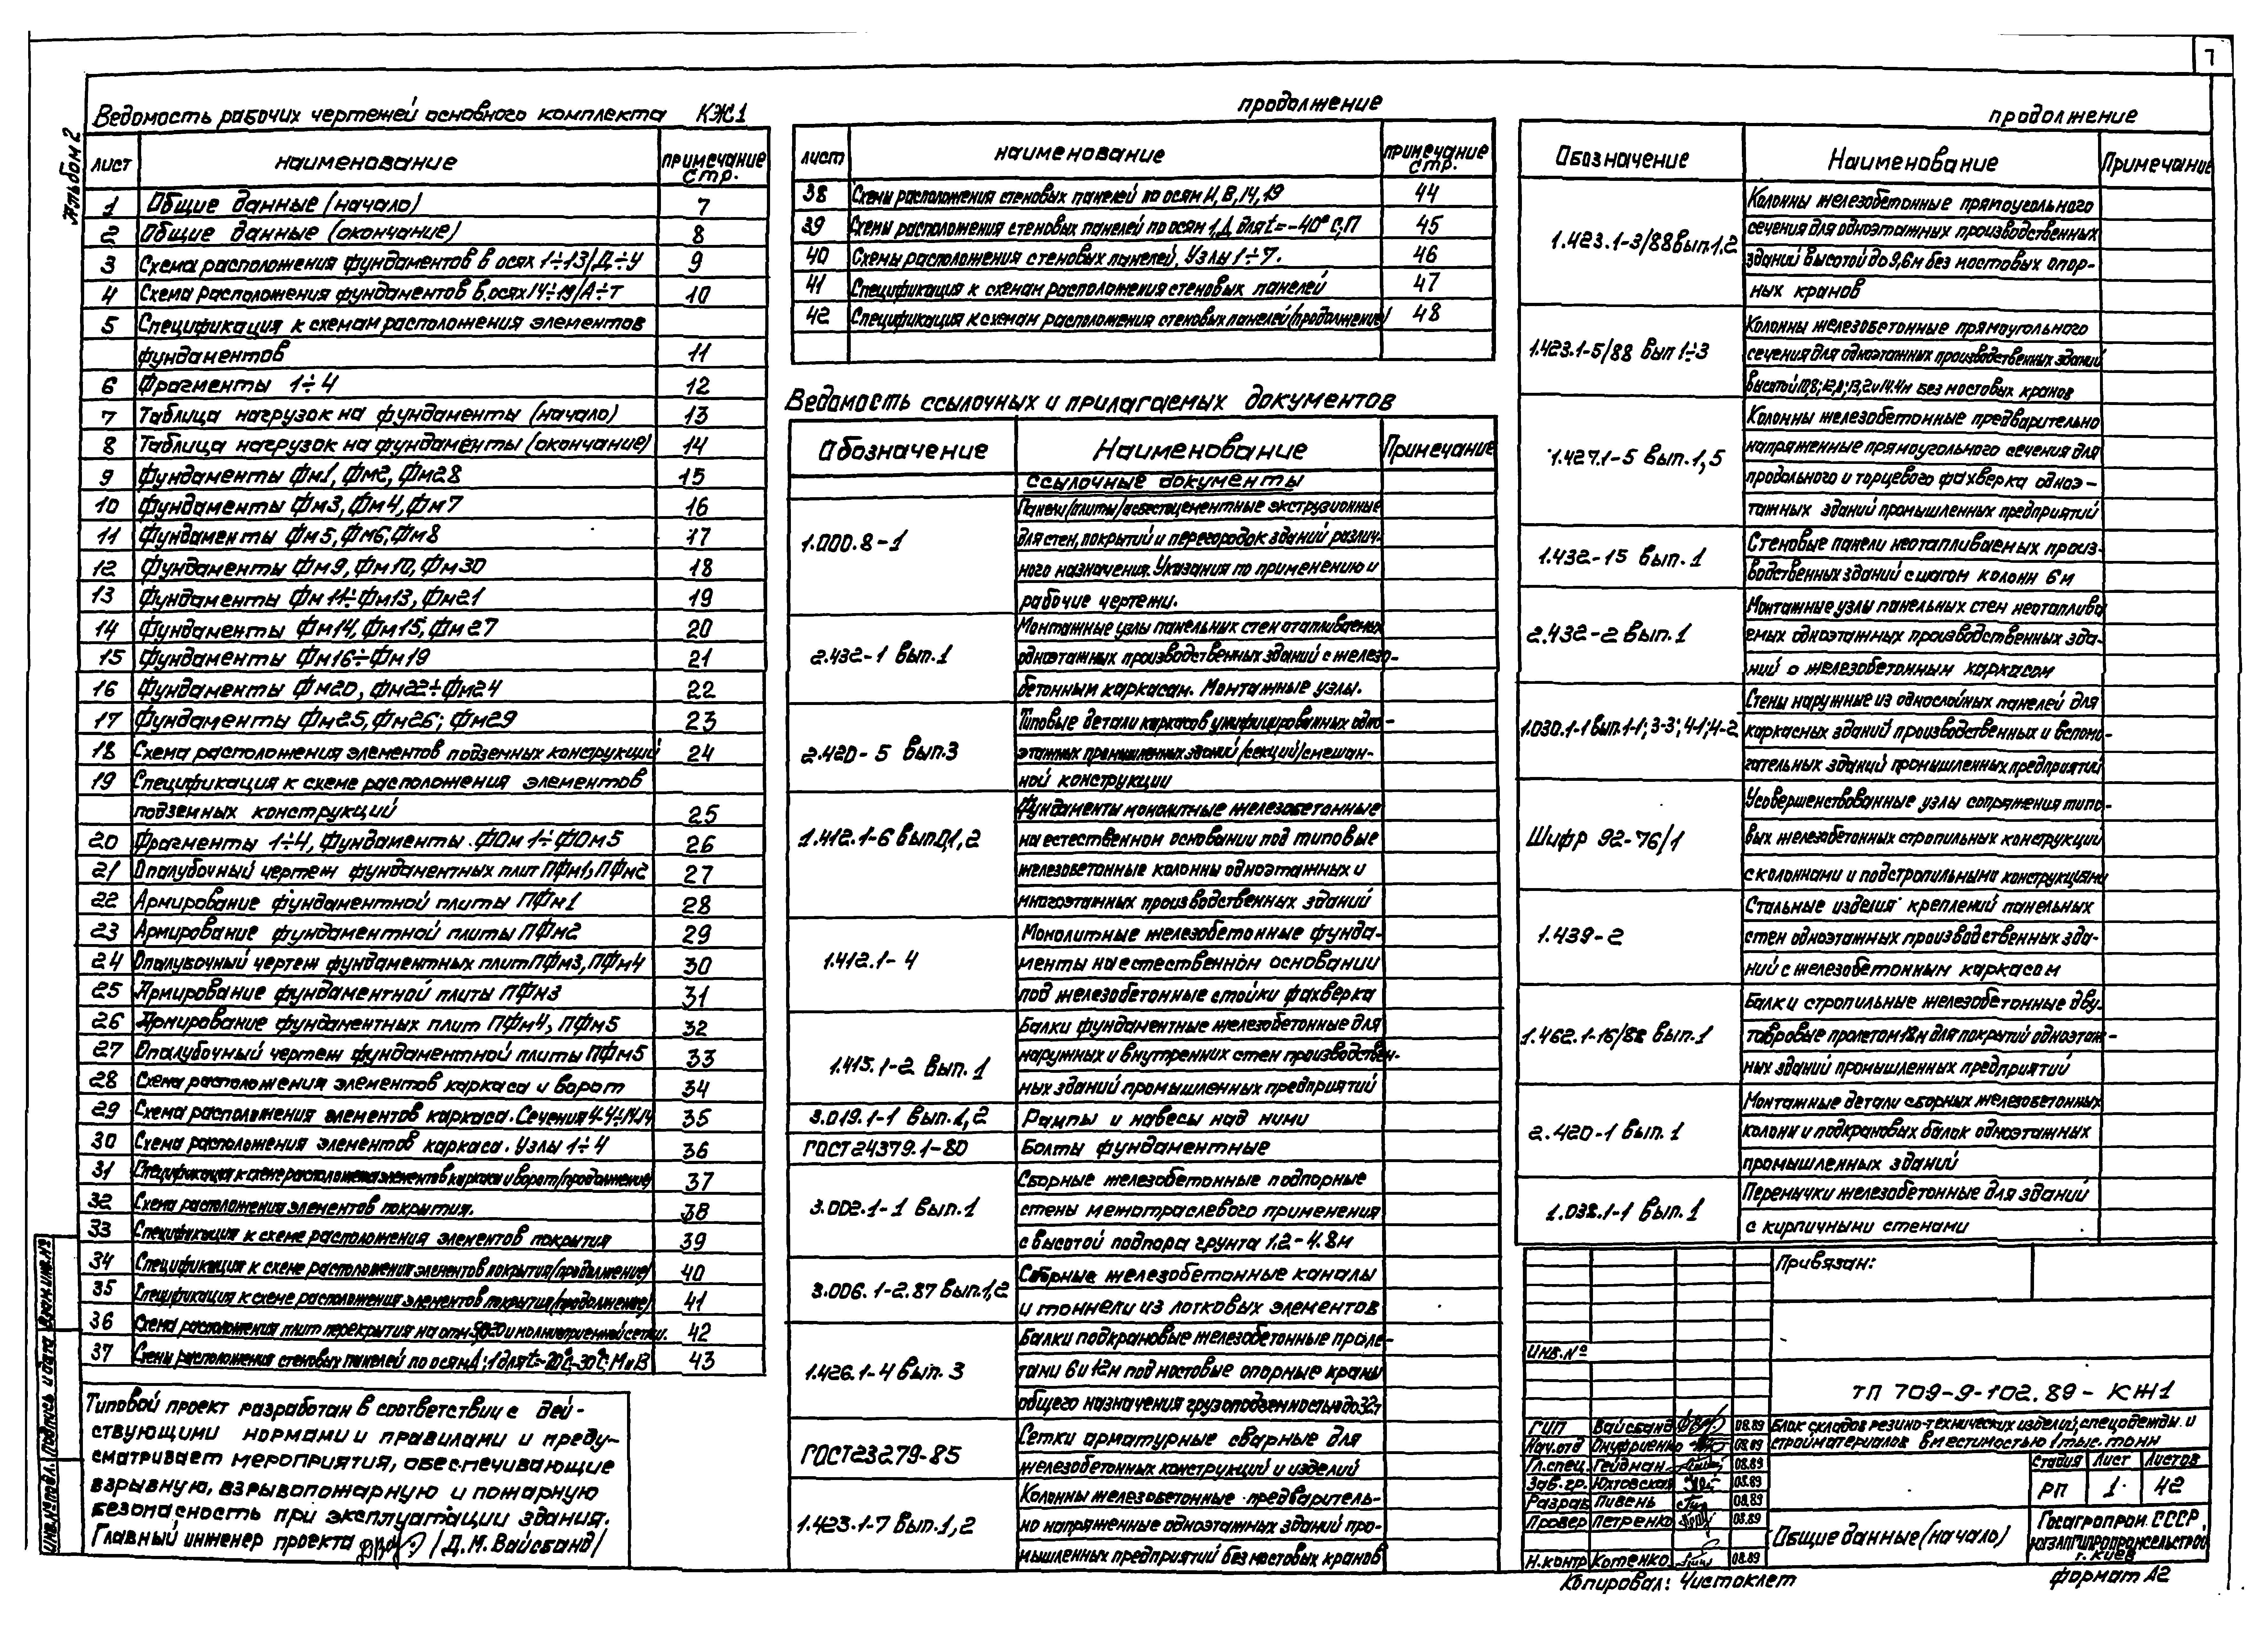 7
Альбом 2
Ведомость рабочих чертежей основного комплекта КЖ1
лист наименование примечание стр.
1 Общие данные (начало) 7
2 Общие данные (окончание) 8
3 Схема расположения фундаментов в осях 1÷13/Д÷У 9
4 Схема расположения фундаментов в осях 14÷19/А÷Т 10
5 Спецификация к схемам расположения элементов
фундаментов 11
6 Фрагменты 1÷4 12
7 Таблица нагрузок на фундаменты (начало) 13
8 Таблица нагрузок на фундаменты (окончание) 14
9 Фундаменты Фм1, Фм2, Фм28 15
10 Фундаменты Фм3, Фм4, Фм7 16
11 Фундаменты Фм5, Фм6, Фм8 17
12 Фундаменты Фм9, Фм10, Фм30 18
13 Фундаменты Фм11÷Фм13, Фм21 19
14 Фундаменты Фм14, Фм15, Фм27 20
15 Фундаменты Фм16÷Фм19 21
16 Фундаменты Фм20, Фм22÷Фм24 22
17 Фундаменты Фм25, Фм26; Фм29 23
18 Схема расположения элементов подземных конструкций 24
19 Спецификация к схеме расположения элементов
подземных конструкций 25
20 Фрагменты 1÷4, Фундаменты ФОм1÷ФОм5 26
21 Опалубочный чертеж фундаментных плит ПФм1, ПФм2 27
22 Армирование фундаментной плиты ПФм1 28
23 Армирование фундаментной плиты ПФм2 29
24 Опалубочный чертеж фундаментных плит ПФм3, ПФм4 30
25 Армирование фундаментной плиты ПФм3 31
26 Армирование фундаментных плит ПФм4, ПФм5 32
27 Опалубочный чертеж фундаментной плиты ПФм5 33
28 Схема расположения элементов каркаса и ворот 34
29 Схема расположения элементов каркаса. Сечения 35
30 Схема расположения элементов каркаса. Узлы 1÷4 36
31 Спецификация к схеме расположения элементов каркаса и ворот (продолжение) 37
32 Схема расположения элементов покрытия. 38
33 Спецификация к схеме расположения элементов покрытия 39
34 Спецификация к схеме расположения элементов покрытия (продолжение) 40
35 Спецификация к схеме расположения элементов покрытия (продолжение) 41
36 Схема расположения плит перекрытия на отм. и молниеприемной сетки. 42
37 Схемы расположения стеновых панелей по осям 43
Типовой проект разработан в соответствии с дей-
ствующими нормами и правилами и преду-
сматривает мероприятия, обеспечивающие
взрывную, взрывопожарную и пожарную
безопасность при эксплуатации здания.
Главный инженер проекта /Д.М. Вайсбанд/
инв.№ подл. Подпись и дата Взам.инв.№
продолжение
лист наименование примечание стр.
38 Схемы расположения стеновых панелей по осям И, В, 14, 19 44
39 Схемы расположения стеновых панелей по осям 1, Д для t=-40° С; П 45
40 Схемы расположения стеновых панелей. Узлы 1÷7. 46
41 Спецификация к схемам расположения стеновых панелей 47
42 Спецификация к схемам расположения стеновых панелей (продолжение) 48
Ведомость ссылочных и прилагаемых документов
Обозначение Наименование Примечание
ссылочные документы
1.000.8-1 Панели (плиты) асбестоцементные экструзионные
для стен, покрытий и перегородок зданий различ-
ного назначения. Указания по применению и
рабочие чертежи.
2.432-1 вып.1 Монтажные узлы панельных стен отапливаемых
одноэтажных производственных зданий с железо-
бетонным каркасом. Монтажные узлы.
2.420-5 вып.3 Типовые детали каркасов унифицированных одно-
этажных промышленных зданий (секций) смешан-
ной конструкции
1.412.1-6 вып.0,1,2 Фундаменты монолитные железобетонные
на естественном основании под типовые
железобетонные колонны одноэтажных и
многоэтажных производственных зданий
1.412.1-4 Монолитные железобетонные фунда-
менты на естественном основании
под железобетонные стойки фахверка
1.415.1-2 вып.1 Балки фундаментные железобетонные для
наружных и внутренних стен производствен-
ных зданий промышленных предприятий
3.019.1-1 вып.1,2 Рампы и навесы над ними
ГОСТ24379.1-80 Болты фундаментные
3.002.1-1 вып.1 Сборные железобетонные подпорные
стены межотраслевого применения
с высотой подпора грунта 1.2-4.8м
3.006.1-2.87 вып.1,2 Сборные железобетонные каналы
и тоннели из лотковых элементов
1.426.1-4 вып.3 Балки подкрановые железобетонные проле-
тами 6 и 12м под мостовые опорные краны
общего назначения грузоподъемностью до 32т
ГОСТ23279-85 Сетки арматурные сварные для
железобетонных конструкций и изделий
1.423.1-7 вып.1,2 Колонны железобетонные предваритель-
но напряженные одноэтажных зданий про-
мышленных предприятий без мостовых кранов
продолжение
Обозначение Наименование Примечание
1.423.1-3/88 вып.1,2 Колонны железобетонные прямоугольного
сечения для одноэтажных производственных
зданий высотой до 9,6м без мостовых опор-
ных кранов
1.423.1-5/88 вып 1÷3 Колонны железобетонные прямоугольного
сечения для одноэтажных производственных зданий
высотой 10,8; 12,0; 13,2 и 14.4м без мостовых кранов
1.427.1-5 вып.1,5 Колонны железобетонные предварительно
напряженные прямоугольного сечения для
продольного и торцевого фахверка одноэ-
тажных зданий промышленных предприятий
1.432-15 вып.1 Стеновые панели неотапливаемых произ-
водственных зданий с шагом колонн 6м
2.432-2 вып.1 Монтажные узлы панельных стен неотаплива
емых одноэтажных производственных зда-
ний с железобетонным каркасом
1.030.1-1 вып.1-1; 3-3; 4-1; 4-2 Стены наружные из однослойных панелей для
каркасных зданий производственных и вспомо-
гательных зданий промышленных предприятий
Шифр 92-76/1 Усовершенствованные узлы сопряжения типо-
вых железобетонных стропильных конструкций
с колоннами и подстропильными конструкциями
1.439-2 Стальные изделия креплений панельных
стен одноэтажных производственных зда-
ний с железобетонным каркасом
1.462.1-16/88 вып.1 Балки стропильные железобетонные дву-
тавровые пролетом 18м для покрытий одноэтаж-
ных зданий промышленных предприятий
2.420-1 вып.1 Монтажные детали сборных железобетонных
колонн и подкрановых балок одноэтажных
промышленных зданий
1.038.1-1 вып.1 Перемычки железобетонные для зданий
с кирпичными стенами
Привязан:
инв.№
тп 709-9-102.89-КЖ1
ГИП Вайсбанд 08.89 Блок складов резино-технических изделий, спецодежды и
Нач.отд Онуфриенко 08.89 стройматериалов вместимостью 1 тыс. тонн
Гл.спец. Гейдман 08.89 стадия Лист Листов
Зав.гр. Юхтовская 08.89 РП 1 42
Разраб Пивень 08.89
Провер Петренко 08.89 Общие данные (начало) Госагропром СССР,
Н.контр Котенко 08.89 г. Киев
Копировал: Чистоклет формат А2